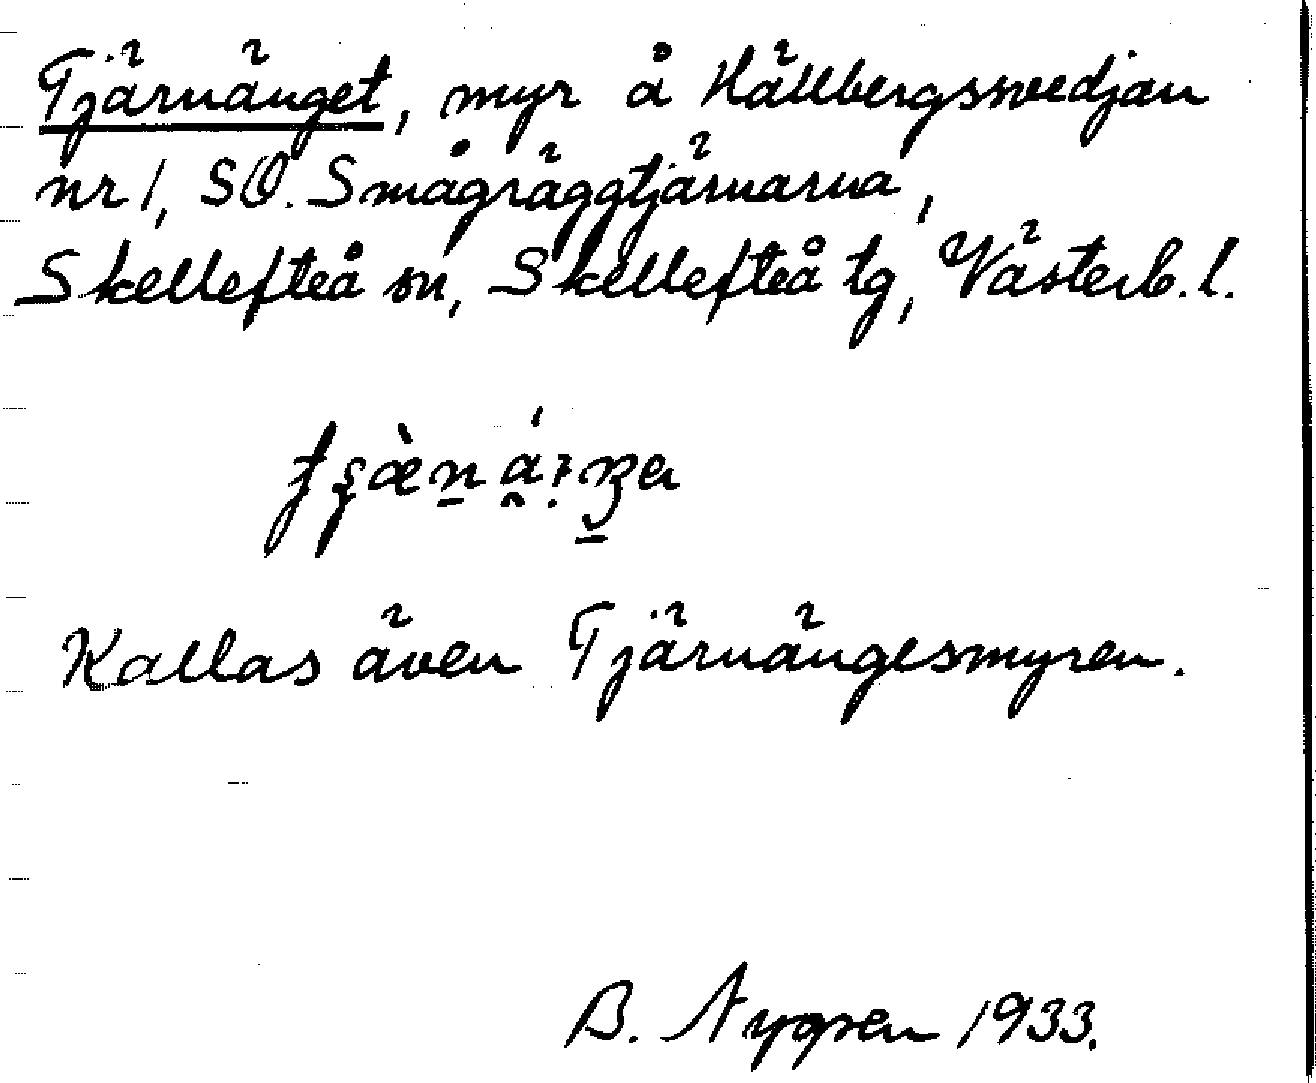 Tjärnänget, myr å Hällbergssvedjan
nr 1, SO. Smågräggtjärnarna,
Skellefteå sn, Skellefteå tg, Västerb. l.
Kallas även Tjärnängesmyren.
B. Nygren 1933.